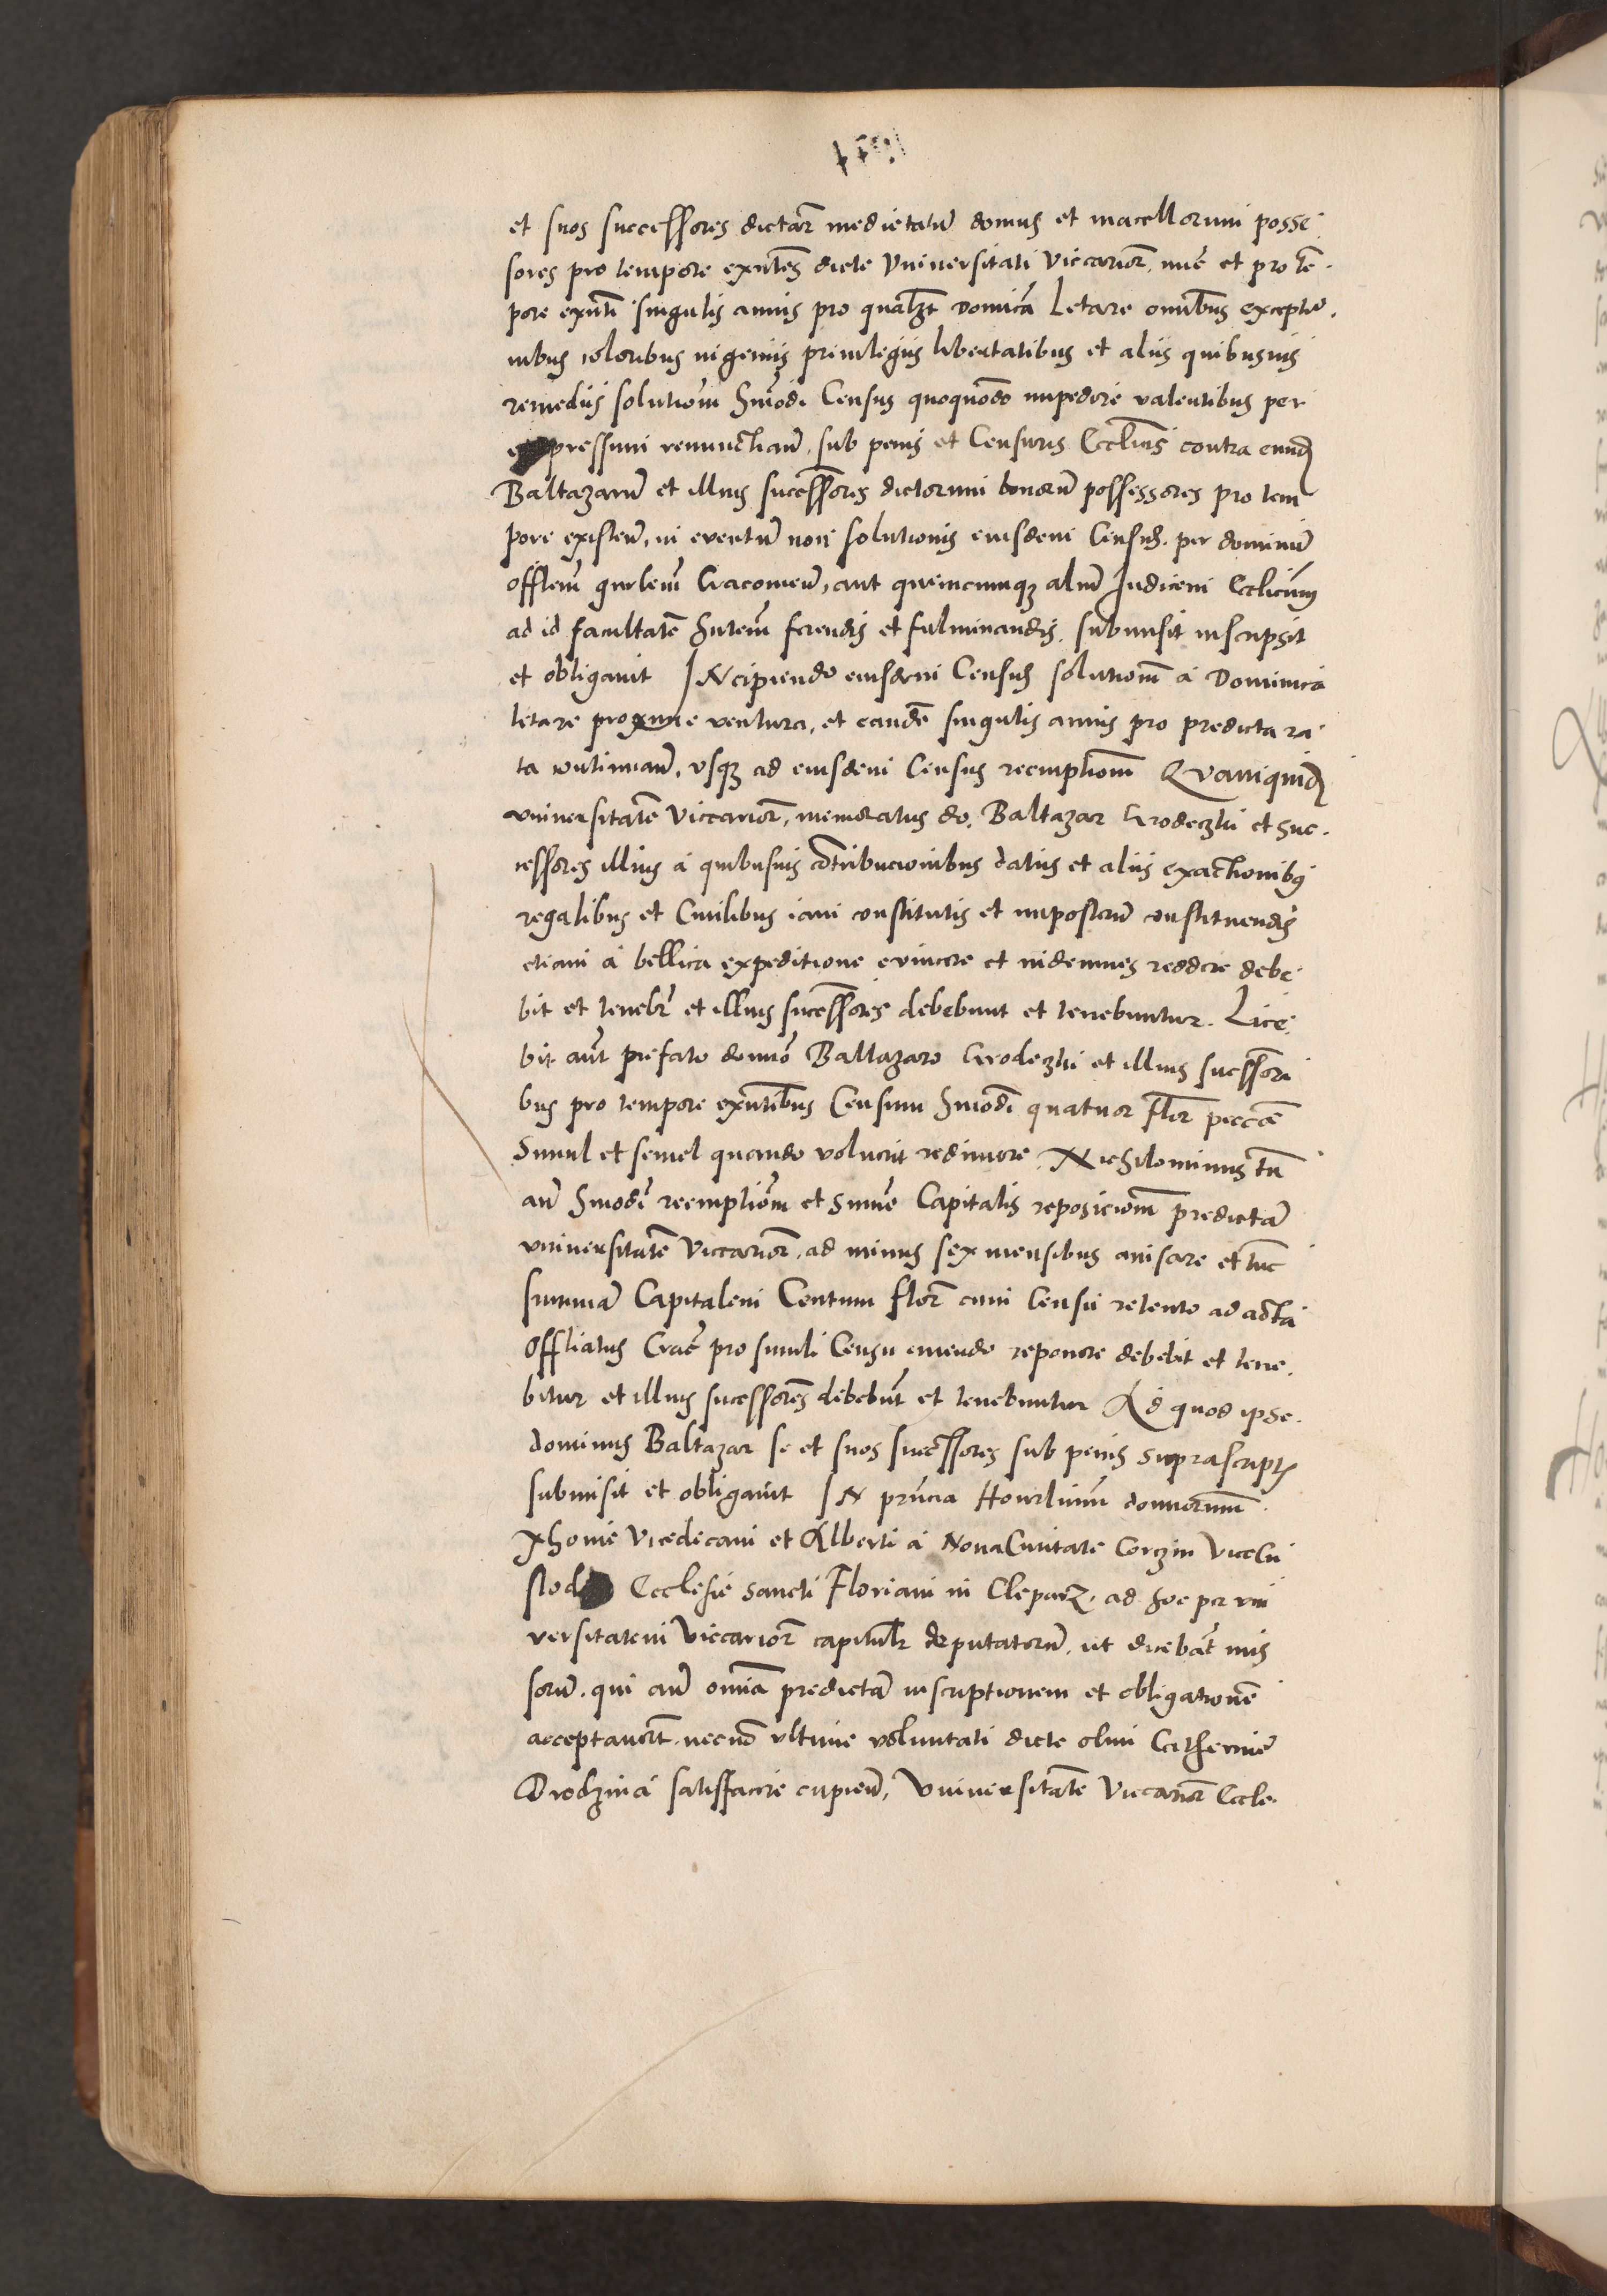 et suos successores dictar̄ medietatū domus et macellorum posse
sores pro tempore exn̄tes dicte Vniversitati Viccarior̄, nūc et pro tē
pore exn̄ti singulis annis pro qualꝫt Domīca Letare omībus exceptio
nibus coloribus ingeniis privilegiis libertatibus et aliis quibusvis
remediis solutiōm hmōdi Census quoquōdo impedire valentibus per
expressum renunctian̄. sub penis et Censuris Eccl̄cis contra eund
Baltazarū et illius sucessores dictorum bonorū possessores pro tem
pore existen̄, in eventū non solutionis eiusdem Census. per dominū
offl̄em gn̄rlem Cracovien̄, aut quemcumqꝫ aliū Judicem Eccl̄icum
ad id facultatē hn̄tem ferendis et fulminandis. submisit inscripsit
et obligavit INcipiendo eiusdem Census solutionm̄ a Dominica
letare proxime ventura, et eandē singulis annis pro predicta ra
ta continuan̄, vsqꝫ ad eiusdem Census reemptionm̄ QVamquid
vniversitatē Viccarior̄, memoratus do. Baltazar Grodeczki et suc
cessores illius a quibusvis cōtribucionibus datiis et aliis exactionibꝰ
regalibus et Civilibus iam constitutis et imposterū constituendis
etiam a bellica expeditione evincere et indemnes reddere debe
bit et tenebr̄ et illius sucessores debebunt et tenebuntur. Lice
bit aūt prefato domīo Baltazaro Grodeczki et illius sucessori
bus pro tempore exn̄tibus Censum hmōdi quatuor flor̄ peccē
Simul et semel quando voluerit redimere. Nichilominus tn̄
an̄ hmōdi reemptiōm et sum̄e Capitalis reposicionm̄ predictā
vniversitatē Viccarior̄, ad minus sex mensibus avisare et tūc
summā Capitalem Centum flor̄ cum Censu retento ad acta
Offl̄iatus Crac̄ pro simili Censu emendo reponere debebit et tene
bitur et illius sucessores debebūt et tenebuntur Ad quod ipse
dominus Baltazar se et suos successores sub penis suprascript
submisit et obligavit IN prn̄cia Honrlium dominorum
Thome Vicedecani et Alberti a Nova Civitate Corczin ViceCu
stod Ecclesie sancti Floriani in Clepar ad hoc per vni
versitatem Viccarior̄ capitul̄r deputatorū, ut dicebāt mis
sorū. qui an̄ omīa predictā inscriptionem et obligationē
acceptaverūt. necnō vltime voluntati dicte olim Catherine
satisfacere cupien̄, Vniversitatē Viccarior̄ Eccle